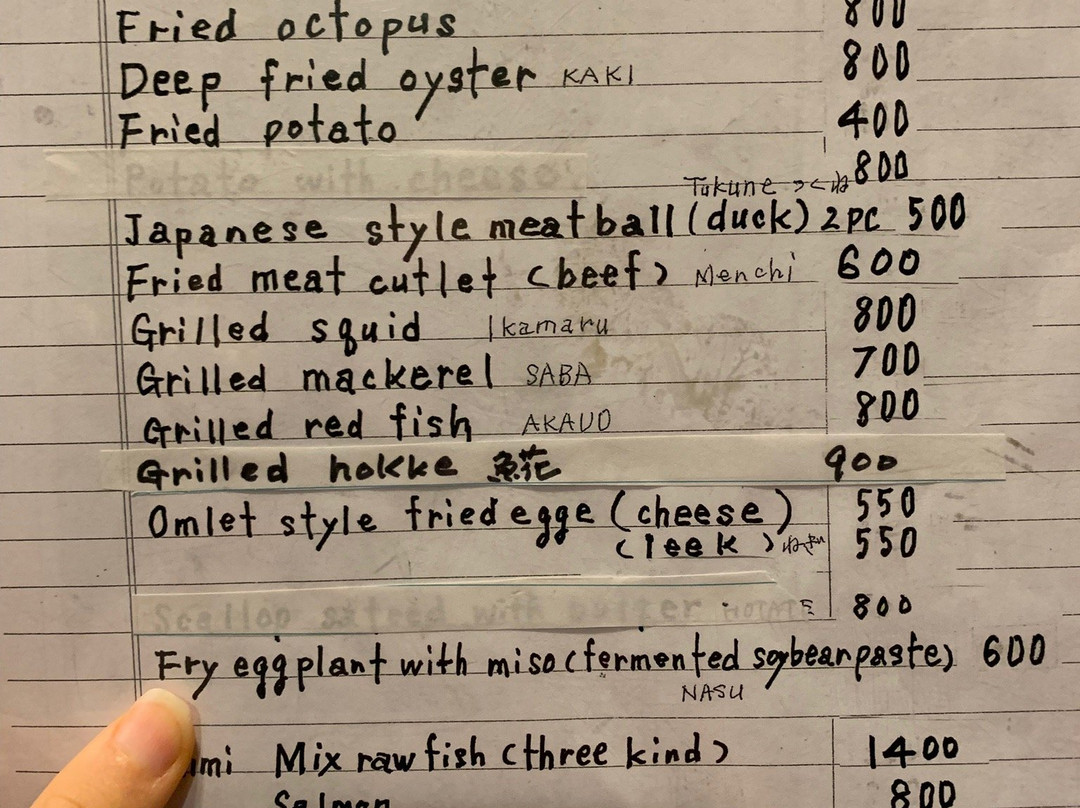 Fried octopus 800
Deep fried oyster KAKI 800
Fried potato 400
Potato with cheese 800
Tukune つくね
Japanese style meatball (duck) 2PC 500
Fried meat cutlet (beef) Menchi 600
Grilled squid Ikamaru 800
Grilled mackerel SABA 700
Grilled red fish AKAUO 800
Grilled hokke 𩸽 900
Omlet style fried egge (cheese) 550
(leek) 550
Scallop with butter HOTATE 800
Fry eggplant with miso (fermented soybean paste) 600
NASU
Mix raw fish (three kind) 1400
Salmon 800